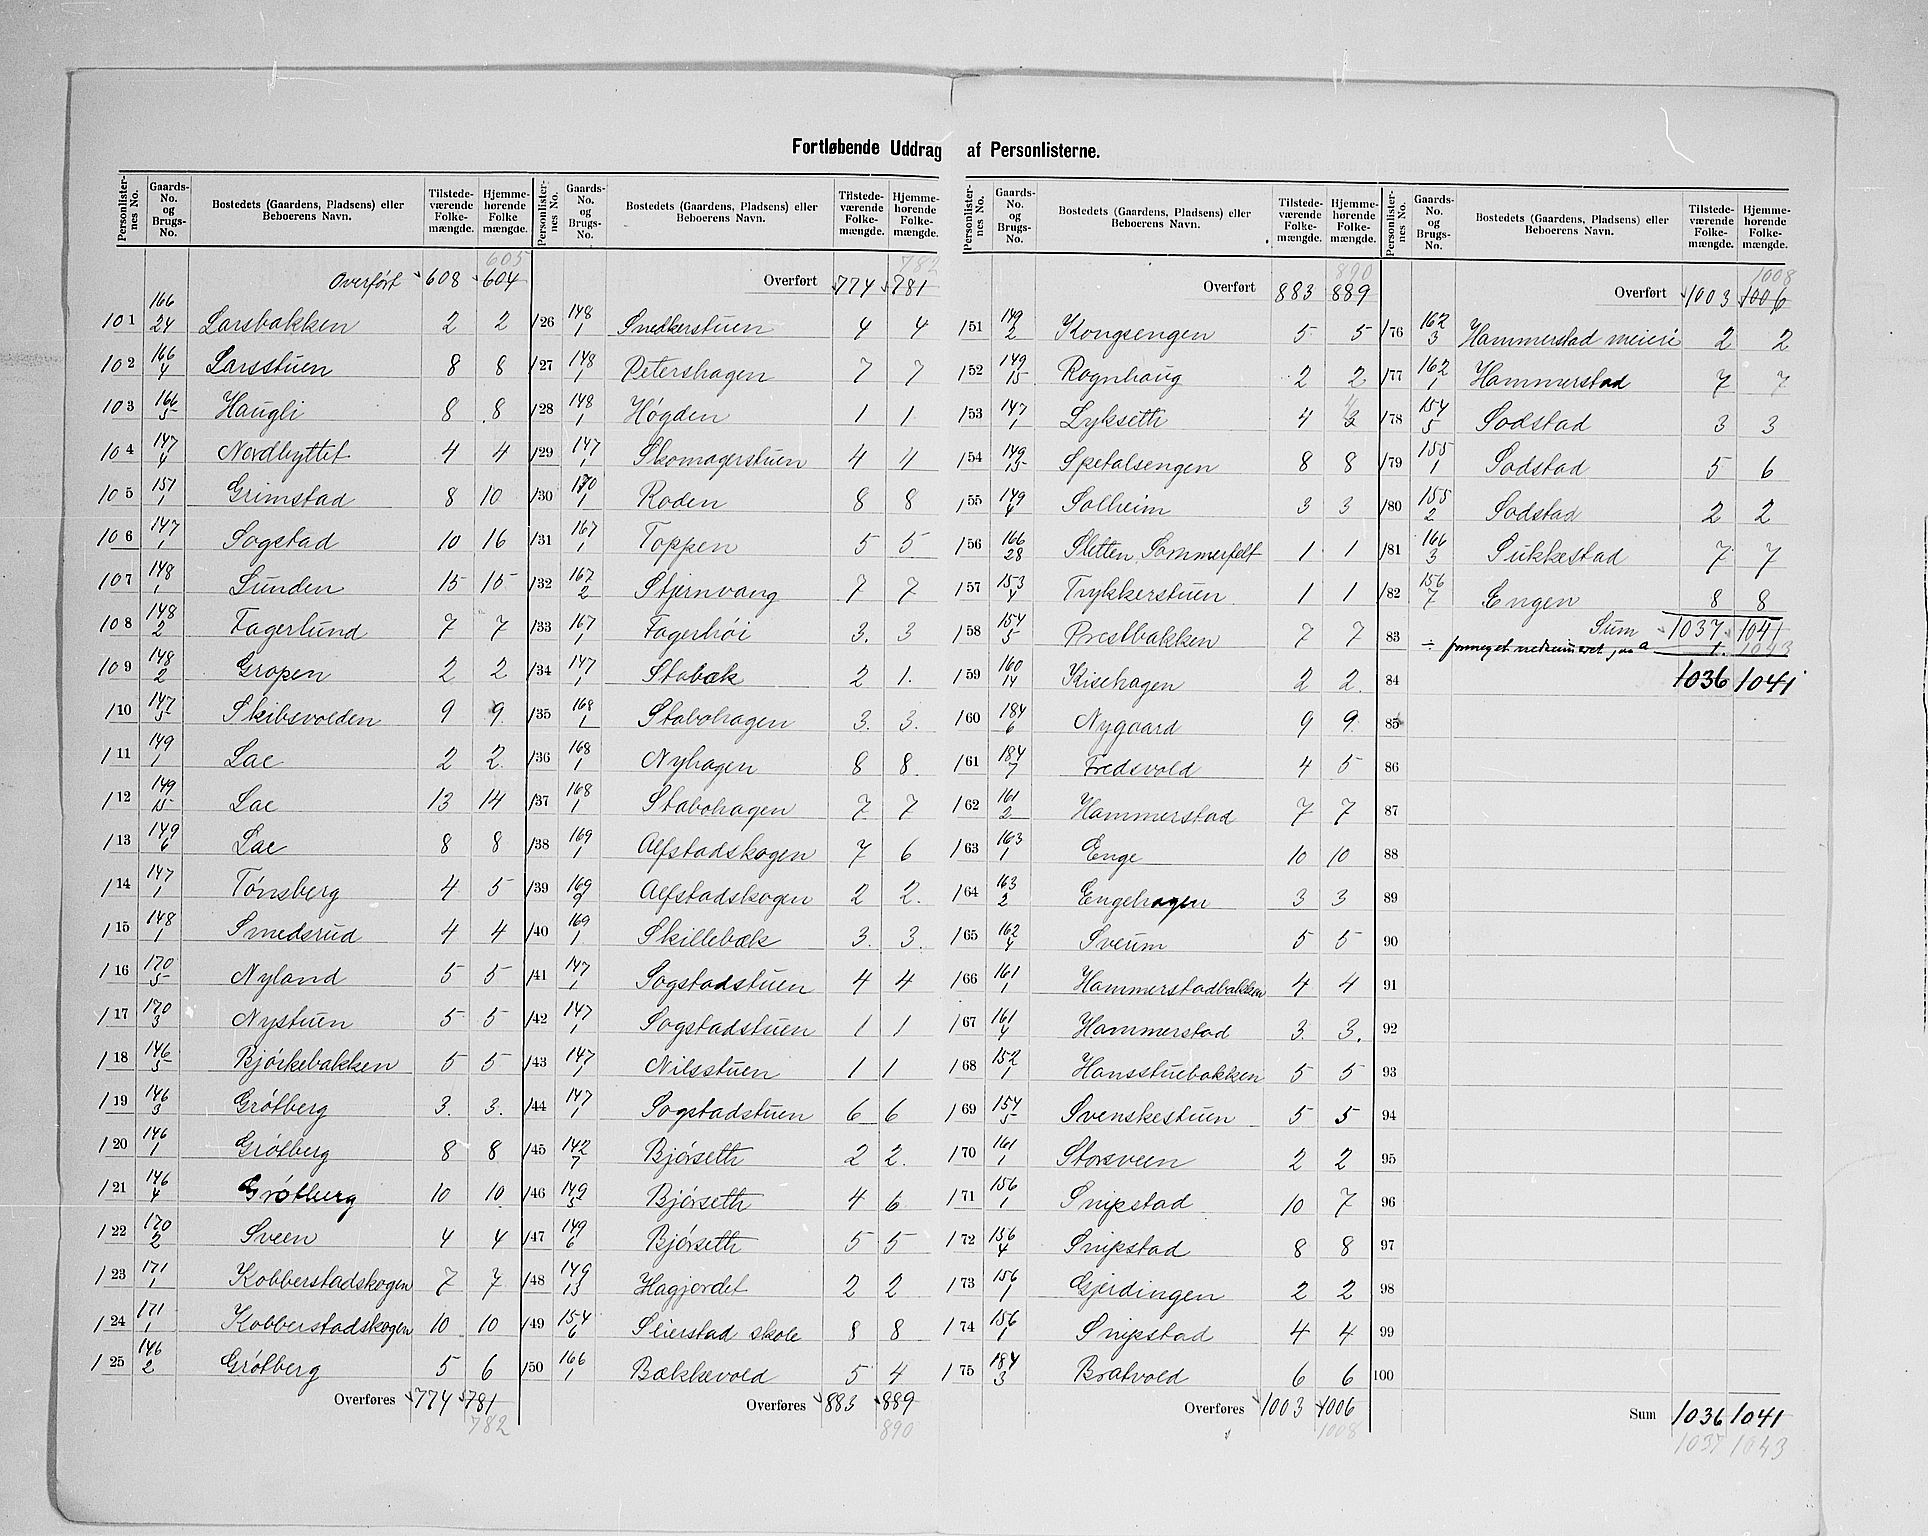 Fortløbende Uddrag af Personlisterne.
Personlister-nes No. | Gaards-No. og Brugs-No. | Bostedets (Gaardens, Pladsens) eller Beboerens Navn. | Tilstede-værende Folke-mængde. | Hjemme-hørende Folke-mængde.
605
Overført 608 604
101 166/24 Larsbakken 2 2
102 166/4 Larsstuen 8 8
103 166/5 Haugli 8 8
104 147/4 Nordbyttet 4 4
105 157/1 Grimstad 8 10
106 147/1 Sogstad 10 16
107 148/1 Lunden 15 15
108 148/2 Fagerlund 7 7
109 148/2 Gropen 2 2
110 147/5 Skibsvolden 9 9
111 149/1 Lae 2 2
112 149/15 Lae 13 14
113 149/6 Lae 8 8
114 147/1 Tønsberg 4 5
115 148/1 Smedsrud 4 4
116 170/5 Nyland 5 5
117 170/3 Nystuen 5 5
118 146/5 Bjørkebakken 5 5
119 146/3 Grøtberg 3. 3.
120 146/1 Grøtberg 8 8
121 146/4 Grøtberg 10 10
122 170/2 Sveen 4 4
123 171/1 Kobberstadskogen 7 7
124 171/1 Kobberstadskogen 10 10
125 146/2 Grøtberg 5 6
Overføres 774 781
782
Personlister-nes No. | Gaards-No. og Brugs-No. | Bostedets (Gaardens, Pladsens) eller Beboerens Navn. | Tilstede-værende Folke-mængde. | Hjemme-hørende Folke-mængde.
782
Overført 774 781
126 148/1 Snedkerstuen 4 4
127 148/1 Petershagen 7 7
128 148/1 Høgden 1 1
129 147/1 Skomagerstuen 4 4
130 170/1 Roden 8 8
131 167/1 Toppen 5 5
132 167/2 Stjernvang 7 7
133 167/1 Fagerhøi 3. 3
134 147/1 Stabæk 2 1.
135 168/1 Stabohagen 3. 3.
136 168/1 Nyhagen 8 8.
137 168/1 Stabohagen 7 7
138 169/1 Alfstadskogen 7 6
139 169/2 Alfstadskogen 2 2.
140 169/1 Skillebæk 3. 3.
141 147/1 Sogstadstuen 4 4
142 147/1 Sogstadstuen 1 1
143 147/1 Nilsstuen 1 1
144 147/1 Sogstadstuen 6 6
145 142/7 Bjørseth 2 2.
146 149/5 Bjørseth 4 6
147 149/6 Bjørseth 5 5
148 149/13 Hagjordet 2 2
149 154/6 Slierstad skole 8 8
150 166/1 Bækkevold 5 4
Overføres 883 889
890
Personlister-nes No. | Gaards-No. og Brugs-No. | Bostedets (Gaardens, Pladsens) eller Beboerens Navn. | Tilstede-værende Folke-mængde. | Hjemme-hørende Folke-mængde.
890
Overført 883 889
151 149/2 Kongsengen 5 5
152 149/15 Rognhaug 2 2
153 147/1 Lykseth 4 3 4
154 149/15 Spetalsengen 8 8
155 149/4 Solheim 3 3
156 166/28 Sletten, Sommerfelt 1 1
157 153/4 Trykkerstuen 1 1
158 154/5 Prestbakken 7 7
159 160/14 Kisehagen 2 2.
160 184/6 Nygaard 9 9.
161 184/7 Fredsvold 4 5
162 161/2 Hammerstad 7 7
163 163/1 Enge 10 10
164 163/2 Engehagen 3 3
165 162/4 Sverum 5 5
166 161/1 Hammerstadbakken 4 4
167 161/4 Hammerstad 3. 3.
168 152/1 Hansstuebakken 5 5
169 154/5 Svenskestuen 5 5
170 161/1 Storsveen 2 2
171 156/1 Snipstad 10 7
172 156/4 Snipstad 8 8
173 156/1 Gjerdingen 2 2
174 156/1 Snipstad 4 4
175 184/3 Bratvold 6 6
Overføres 1003 1006
1008
Personlister-nes No. | Gaards-No. og Brugs-No. | Bostedets (Gaardens, Pladsens) eller Beboerens Navn. | Tilstede-værende Folke-mængde. | Hjemme-hørende Folke-mængde.
1008
Overført 1003 1006
176 162/3 Hammerstad meieri 2 2
177 162/1 Hammerstad 7 7
178 154/5 Sodstad 3 3
179 155/1 Sodstad 5 6
180 155/2 Sodstad 2 2
181 166/3 Sukkestad 7 7
182 156/7 Engen 8 8
Sum 1037 1041
83 ÷ 1. 1043
84 1036 1041
85
86
87
88
89
90
91
92
93
94
95
96
97
98
99
100
Sum 1036 1041
1037 1043